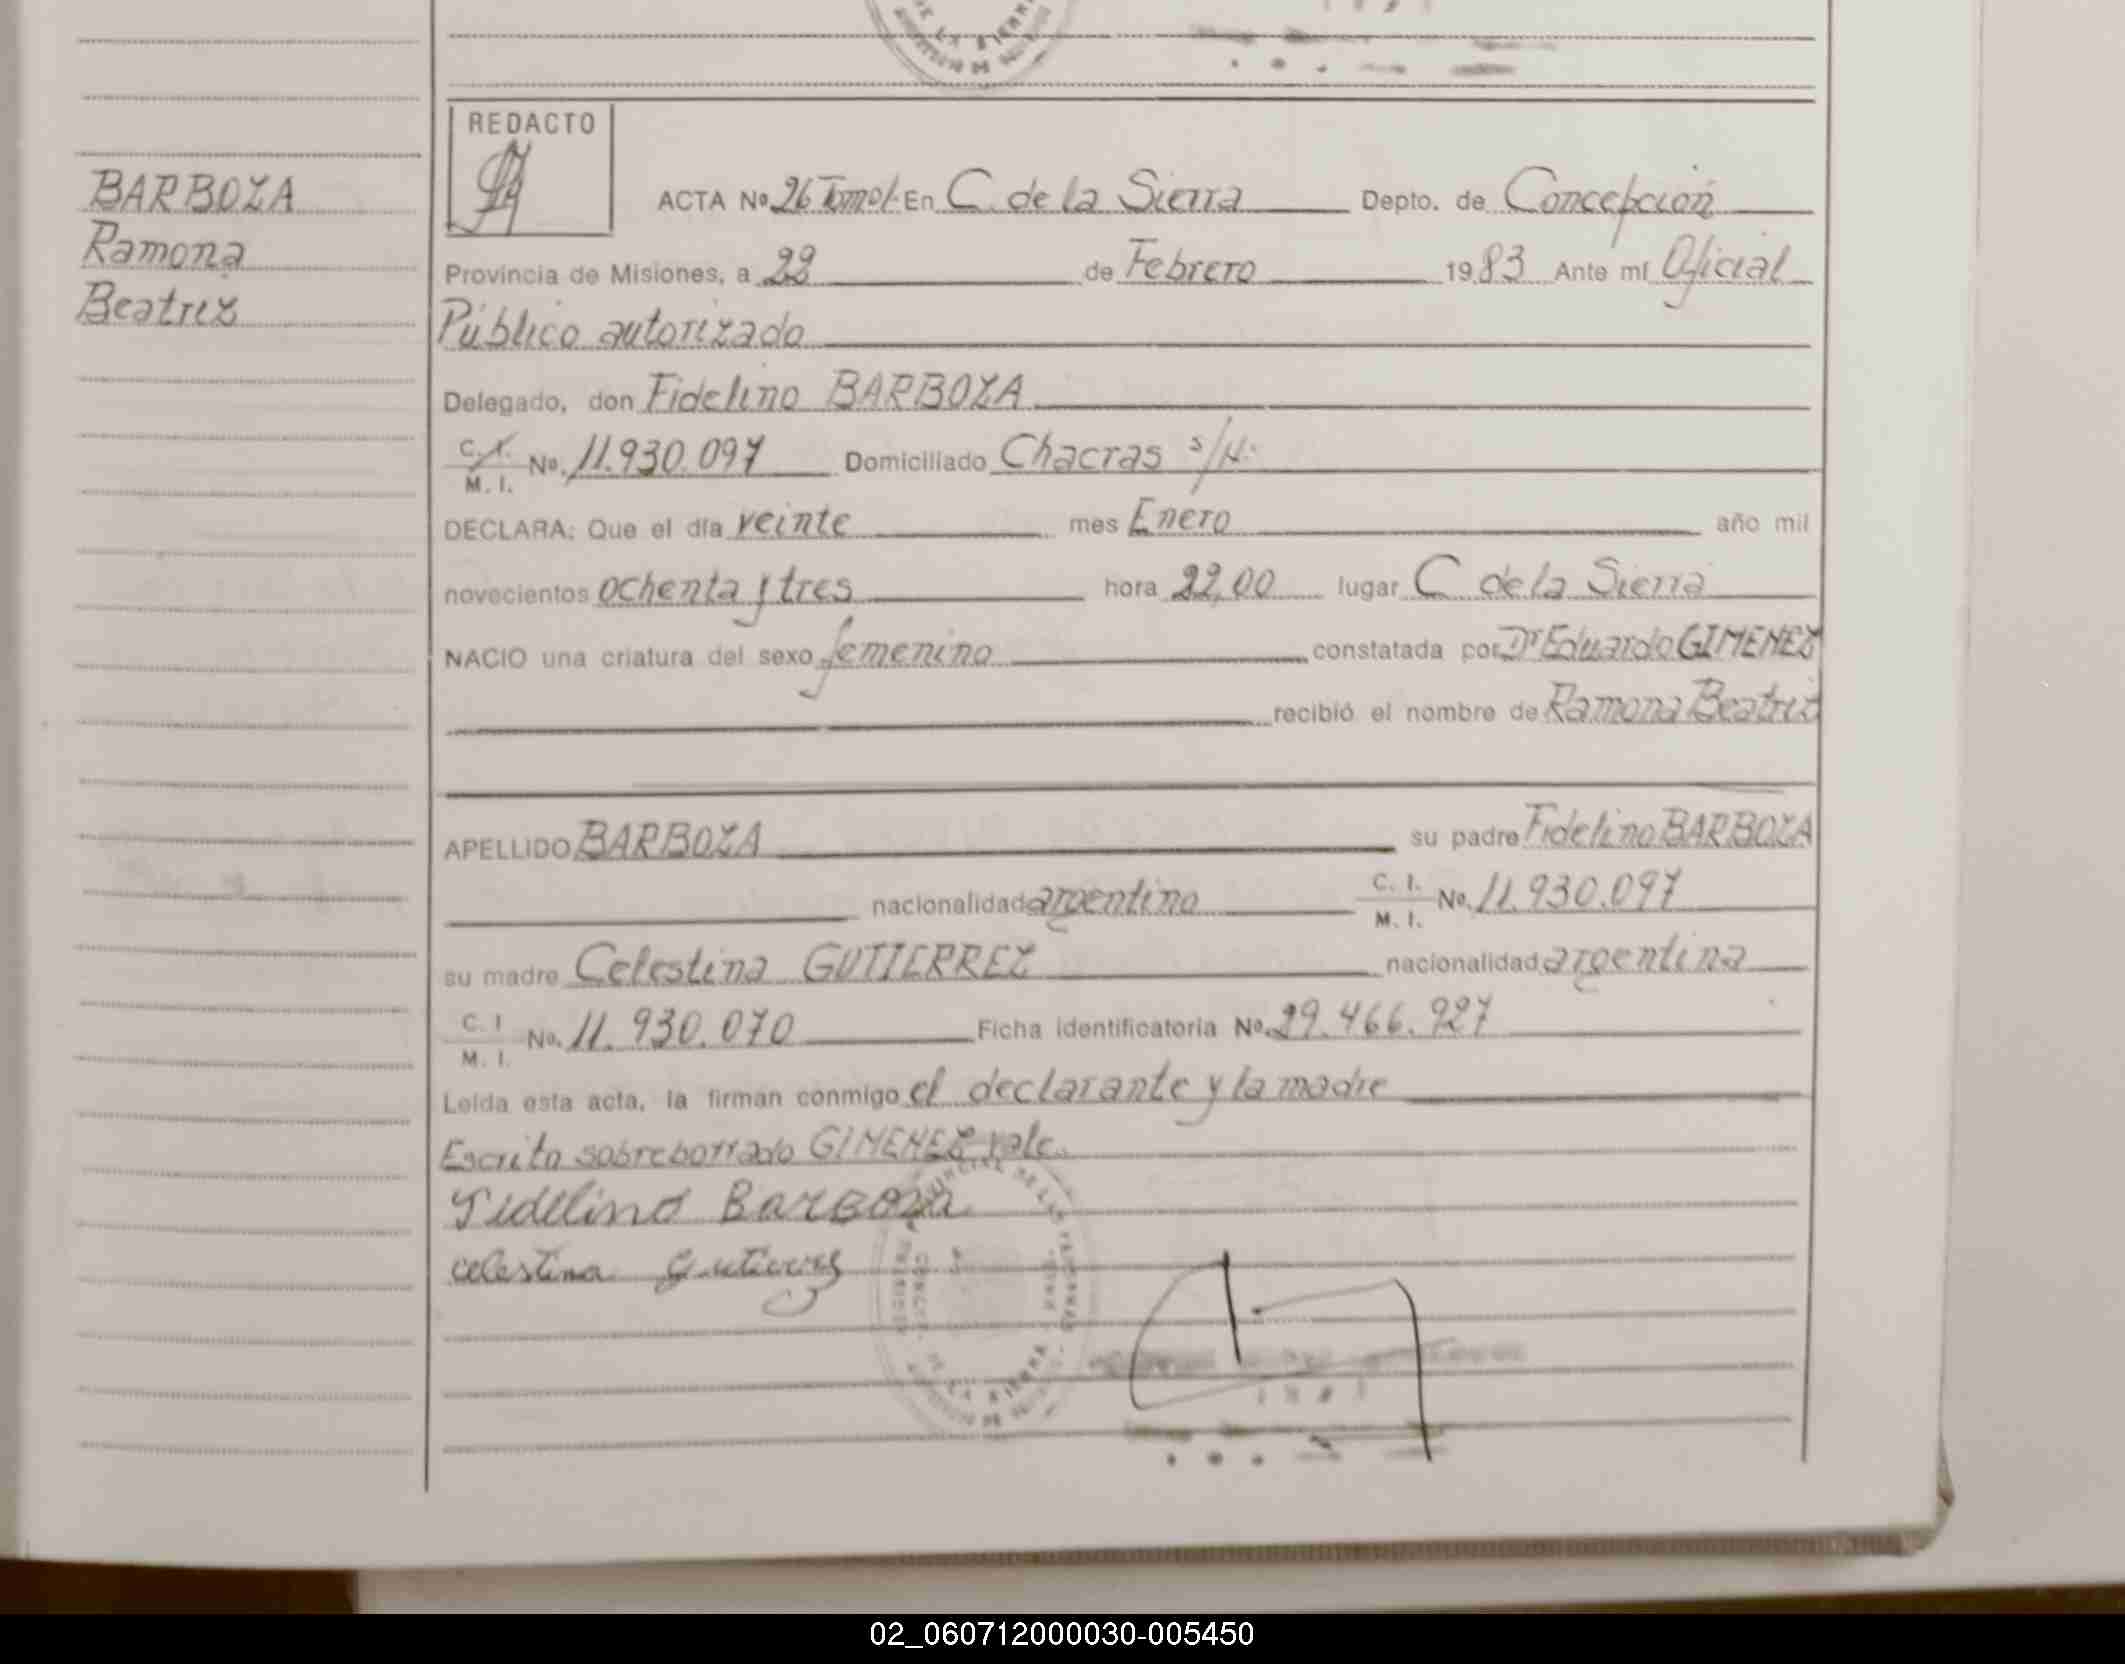 BARBOZA
Ramona
Beatriz
REDACTO
ACTA Nº 26 Tomo I. En C. de la Sierra Depto. de Concepción
Provincia de Misiones, a 22 de Febrero 1983 Ante mí Oficial
Público autorizado
Delegado, don Fidelino BARBOZA
C. I. M. I. Nº. 11.930.097 Domiciliado Chacras s/N.
DECLARA: Que el día veinte mes Enero año mil
novecientos ochenta y tres hora 22,00 lugar C. de la Sierra
NACIO una criatura del sexo femenino constatada por Dr Eduardo GIMENEZ
recibió el nombre de Ramona Beatriz
APELLIDO BARBOZA su padre Fidelino BARBOZA
nacionalidad argentino C. I. M. I. Nº. 11.930.097
su madre Celestina GUTIERREZ nacionalidad argentina
C. I M. I. Nº. 11.930.070 Ficha identificatoria Nº. 29.466.927
Leída esta acta, la firman conmigo el declarante y la madre
Escrito sobreborrado GIMENEZ vale.
Fidelino Barboza
celestina Gutierrez
DE LA SIERRA
02_060712000030-005450